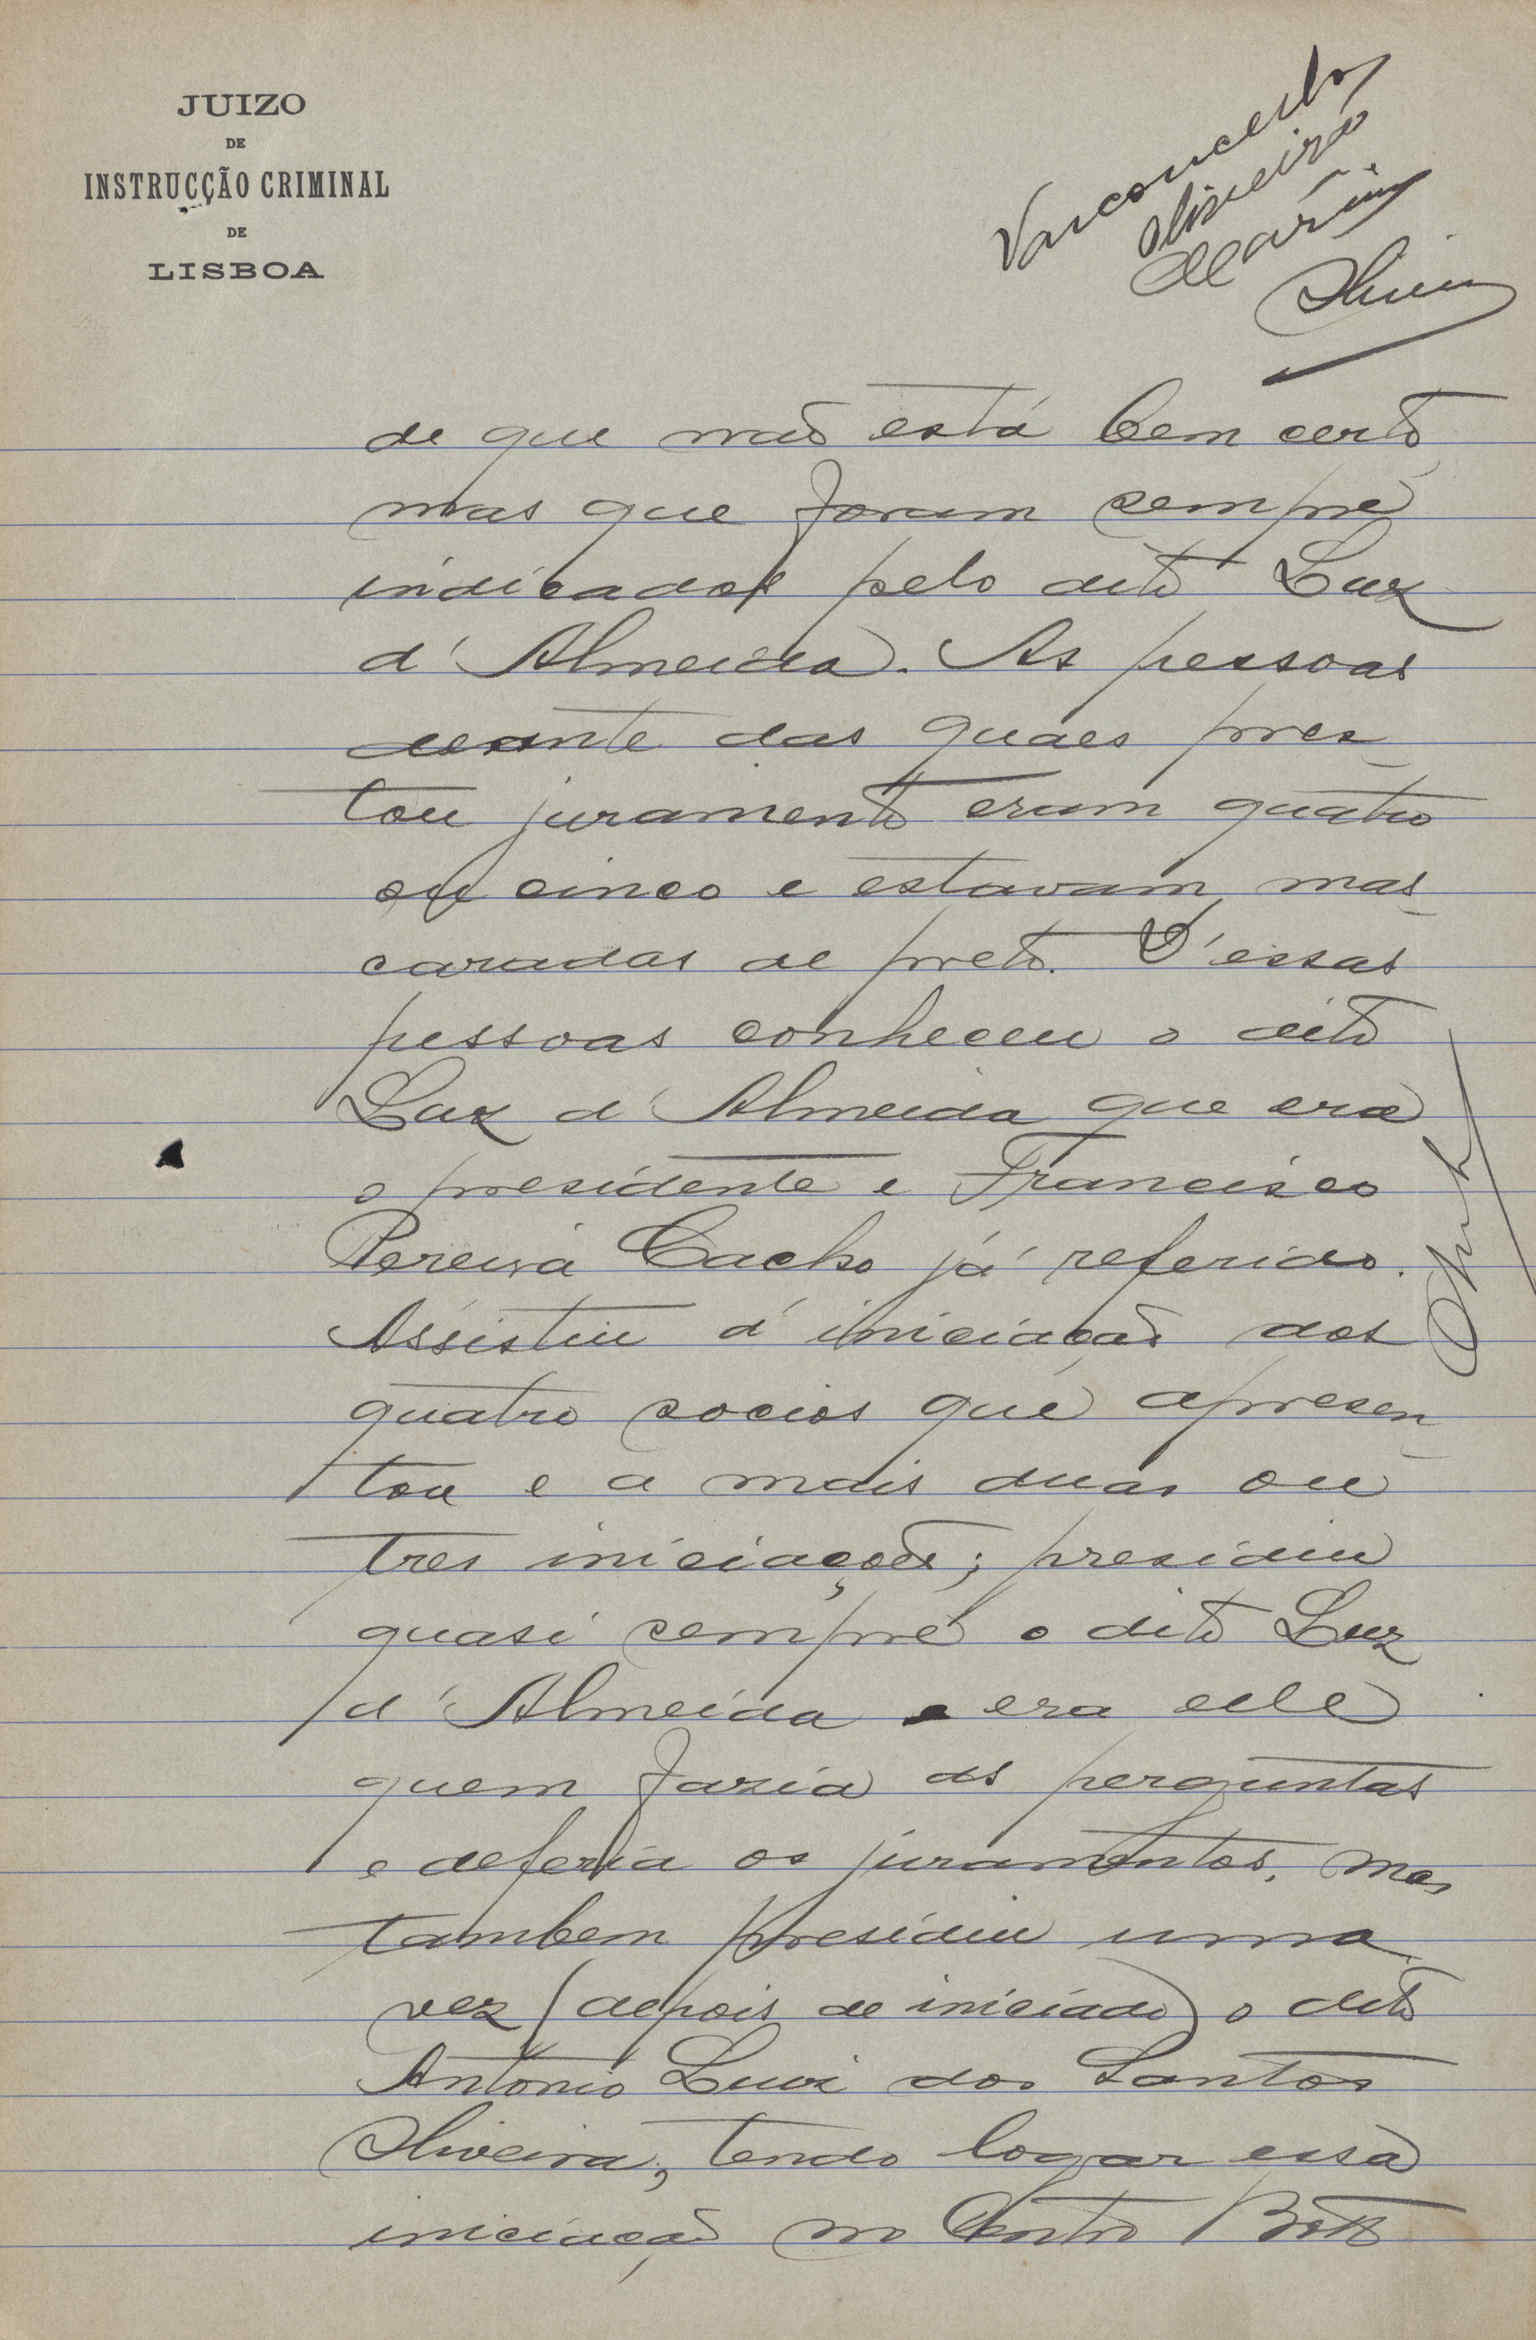 JUIZO
DE
INSTRUCÇÃO CRIMINAL
DE
LISBOA
Vasconcellos
Oliveira
de que não está bem certo
mas que foram sempre
indicados pelo dito Luz
d'Almeida. As pessoas
deante das quaes pres-
tou juramento eram quatro
ou cinco e estavam mas-
caradas de preto. D'essas
pessoas conheceu o dito
Luz d'Almeida que era
o presidente e Francisco
Pereira Cacho já referido.
Assistiu á iniciação dos
quatro socios que apresen-
tou e a mais duas ou
tres iniciações; presidiu
quasi sempre o dito Luz
d'Almeida e era elle
quem fazia as perguntas
e deferia os juramentos, mas
tambem presidiu uma
vez (depois de iniciado) o dito
Antonio Luiz dos Santos
Oliveira, tendo logar essa
iniciação no Centro Botto